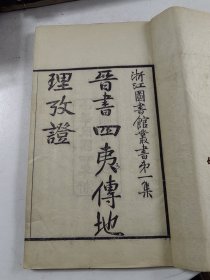 浙江圖書館叢書第一集
晉書四夷傳地
理攷證